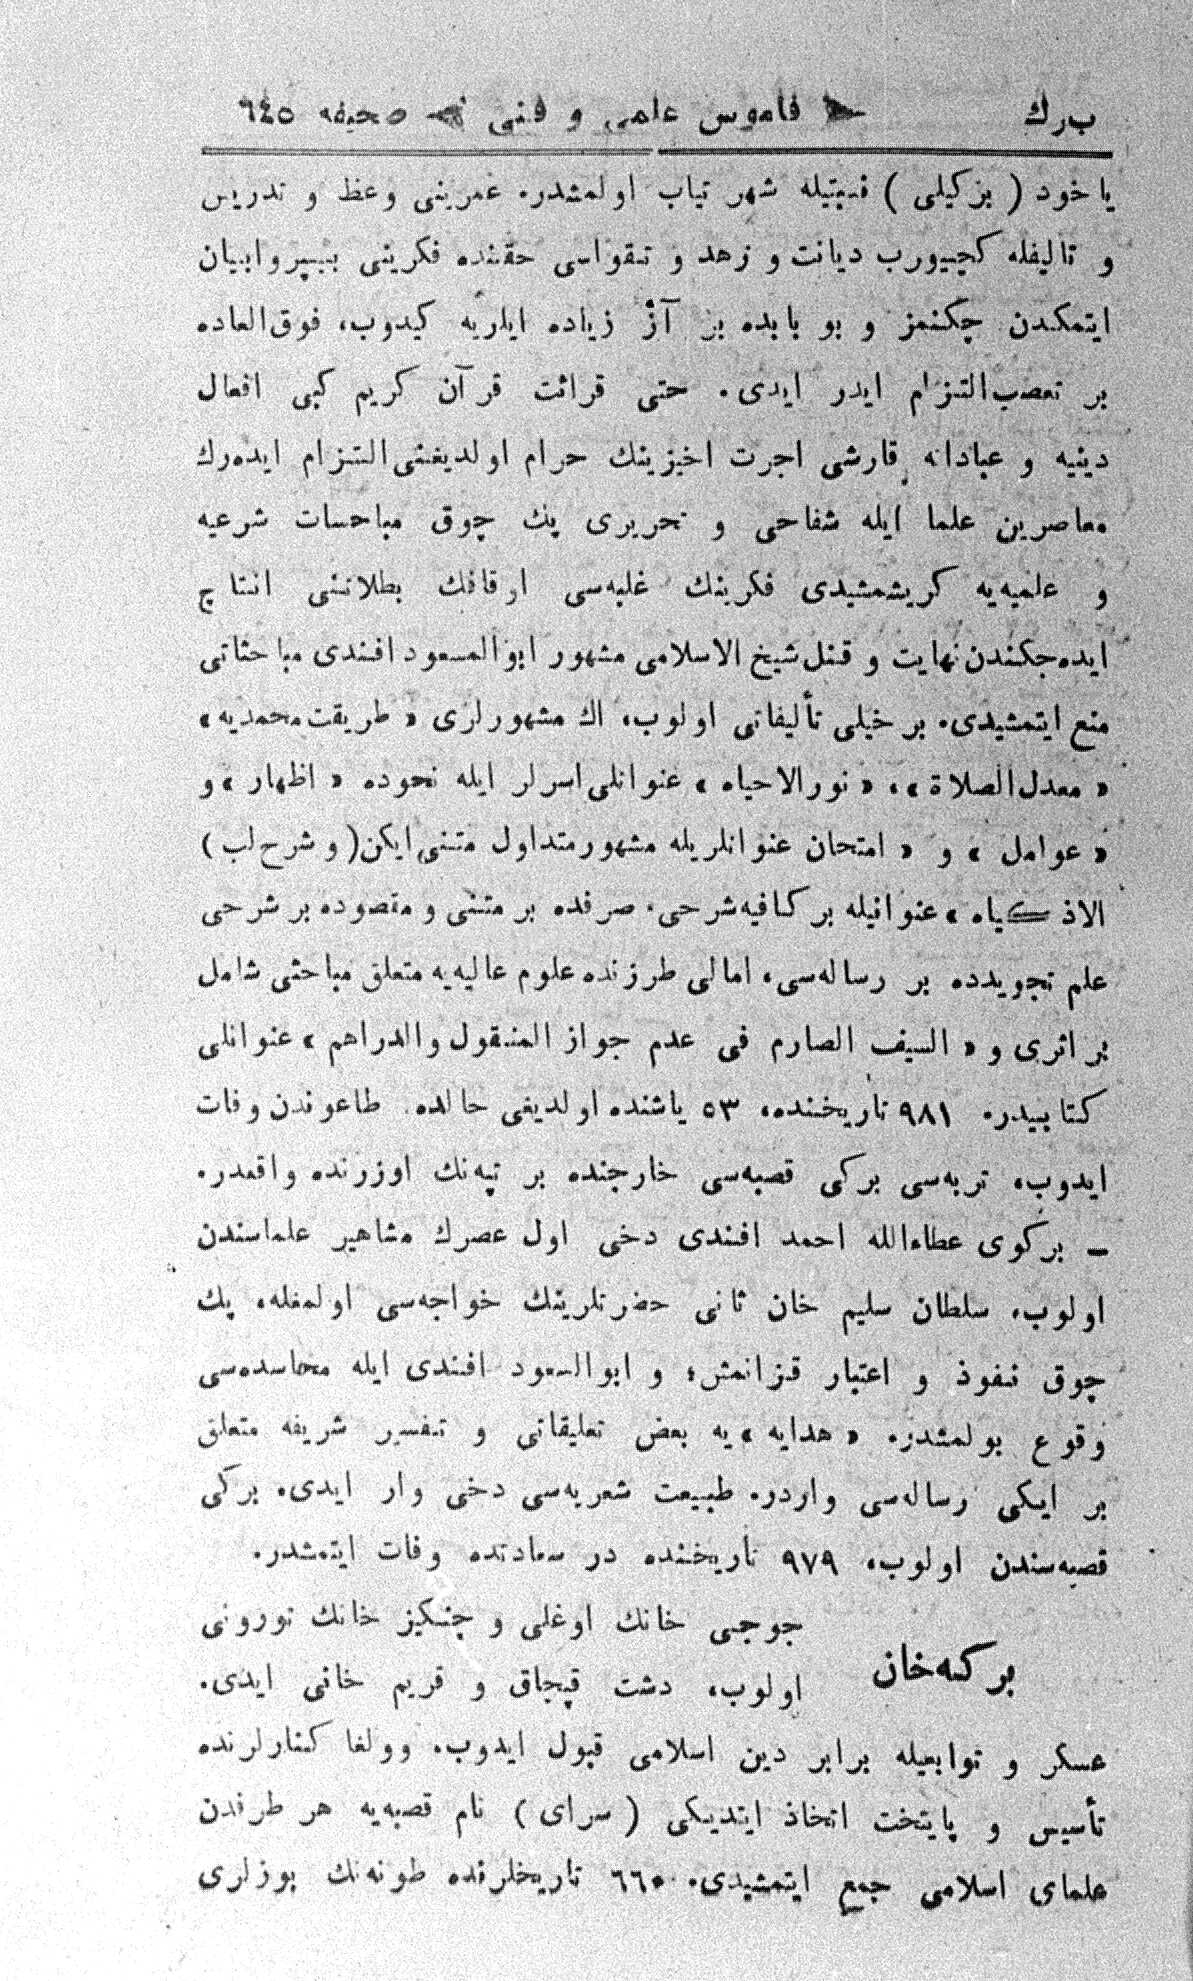 ب‌رك قاموس علمی و فنی صحیفه ٦٤٥
یاخود ( بزکیلی ) نسبتیله شهر تیاب اولمشدر. عمرینی وعظ و تدریس
و تالیفله کچیورب دیانت و زهد و تقواسی حقنده فکرینی بی‌پروا بیان
ایتمکدن چکنمز و بو بابده بر آز زیاده ایلریه کیدوب، فوق‌العاده
بر تعصب‌التزام ایدر ایدی. حتی قرائت قرآن کریم کبی افعال
دینیه و عباداته قارشی اجرت اخیزینك حرام اولدیغنی‌التزام ایده‌رك
معاصرین علما ایله شفاحی و تحریری پك چوق مباحسات شرعیه
و علمیه‌یه کریشمشیدی فکرینك غلبه‌سی اوقافك بطلاننی انتاج
ایده‌جکندن‌نهایت و قتل‌شیخ الاسلامی مشهور ابوالمسعود افندی مباحثاتی
منع ایتمشیدی. بر خیلی تألیفاتی اولوب، اك مشهورلری « طریقت‌محمدیه »
« معدل‌الصلاة »، « نورالاحیاه » عنوانلی‌اسرلر ایله نحوده « اظهار » و
« عوامل » و « امتحان عنوانلریله مشهورمتداول متنی‌ایکن(و شرح‌لب )
الاذکیاه » عنوانیله بر کافیه‌شرحی. صرفده بر متنی و مقصوده بر شرحی
علم تجویدده بر رساله‌سی، امالی طرزنده علوم عالیه‌یه متعلق مباحثی شامل
بر اثری و « السیف الصارم فی عدم جواز المنقول والدراهم » عنوانلی
کتابیدر. ٩٨١ تاریخنده، ٥٣ یاشنده اولدیغی حالده طاعوندن وفات
ایدوب، تربه‌سی برکی قصبه‌سی خارجنده بر تپه‌نك اوزرنده واقعدر.
– برکوی عطاءالله احمد افندی دخی اول عصرك مشاهیر علماسندن
اولوب، سلطان سلیم خان ثانی حضرتلرینك خواجه‌سی اولمغله، پك
چوق نفوذ و اعتبار قزانمش؛ و ابوالسعود افندی ایله محاسده‌سی
وقوع بولمشدر. « هدایه » یه بعض تعلیقاتی و تفسیر شریفه متعلق
بر ایکی رساله‌سی واردر. طبیعت شعریه‌سی دخی وار ایدی. برکی
قصبه‌سندن اولوب، ٩٧٩ تاریخنده در سعادتده وفات ایتمشدر.
برکه‌خان جوجی خانك اوغلی و چنکیز خانك تورونی
اولوب، دشت قپچاق و قریم خانی ایدی.
عسکر و توابعیله برابر دین اسلامی قبول ایدوب، وولغا کنارلرنده
تأسیس و پایتخت اتخاذ ایتدیکی ( سرای ) نام قصبه‌یه هر طرفدن
علمای اسلامی جمع ایتمشیدی. ٦٦٥ تاریخلرنده طونه‌نك بوزلری